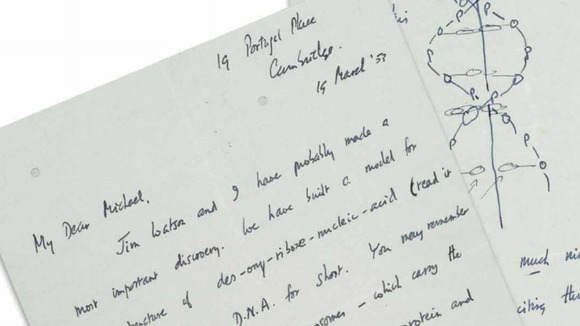 19 Portugal Place
Cambridge.
19 March '53
My Dear Michael,
Jim Watson and I have probably made a
most important discovery. We have built a model for
structure of des-oxy-ribose-nucleic-acid (read it
D.N.A. for short. You may remember
somes - which carry the
protein and
his
P
O
P
O
P
O
P
O
P
P
O
P
O
P
much
citing the